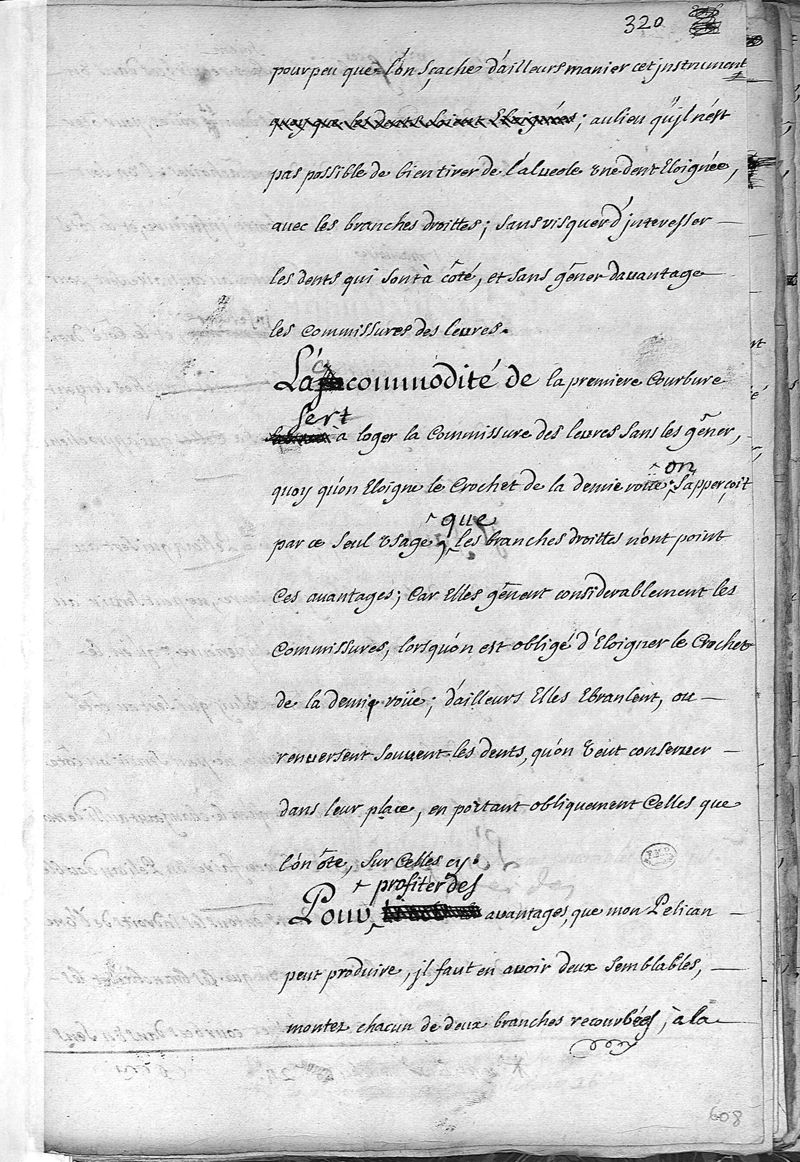 320
pour peu que l'on sçache d'ailleurs manier cet jnstrument
quoy que les dents soient Eloignées; au lieu qu'jl n'est
pas possible de bien tirer de l'alueole vne dent Eloignée,
auec les branches droittes; sans risquer d'jnteresser
les dents qui sont à côté, et sans gêner dauantage
les commissures des leures.
La commodité de la premiere Courbure
sert
à loger la Commissure des leures sans les gêner,
quoy qu'on Eloigne le Crochet de la demie roüe; on s'apperçoit
par ce seul vsage que les branches droittes n'ont point
Ces auantages; Car Elles gênent considerablement les
Commissures, lorsqu'on est obligé d'Eloigner le Crochet
de la demie roüe; d'ailleurs Elles Ebranlent, ou
renuersent souuent les dents, qu'on veut conseruer
dans leur place, en portant obliquement Celles que
l'on ôte, sur Celles cy.
profiter des
Pour auantages, que mon Pelican
peut produire, jl faut en auoir deux semblables,
montez chacun de deux branches recourbées, à la
608